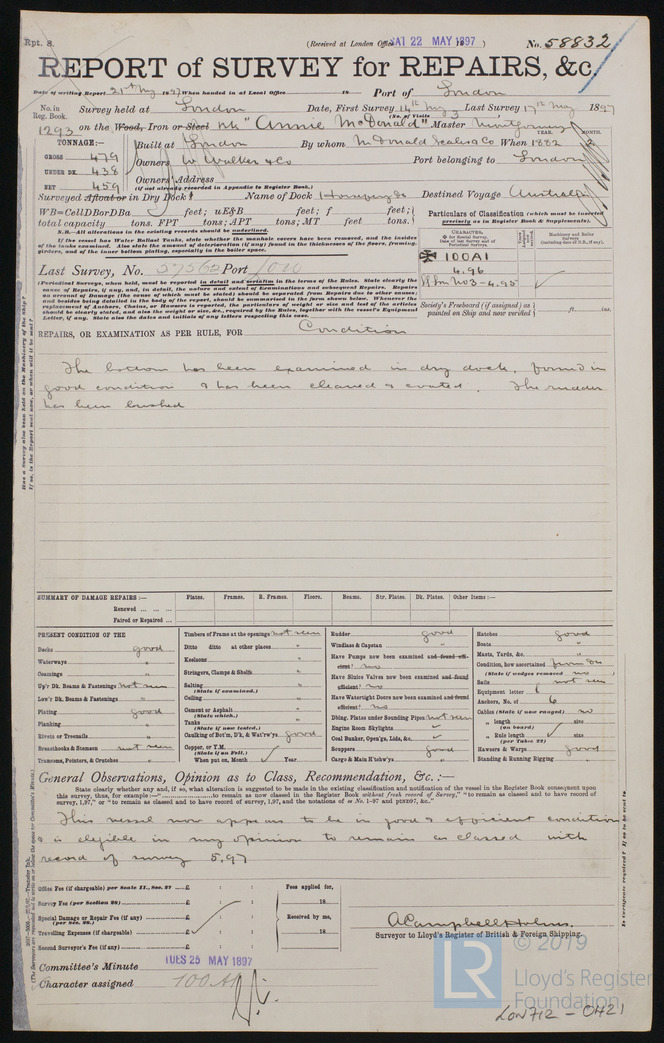 Rpt. 8.
(Received at London Office SAT 22 MAY 1897 )
No. 58832
REPORT of SURVEY for REPAIRS, &c.
Date of writing Report 21st May 1897 When handed in at Local Office 18 Port of London
No. in Reg. Book. Survey held at London Date, First Survey 14th May Last Survey 17th May 1897
(No. of Visits 3 )
1293 on the Wood, Iron or Steel Bk "Annie McDonald" Master Montgomery
YEAR. MONTH.
TONNAGE:— Built at London By whom McDonald &Co When 1882 2
GROSS 479 Owners W Walker & Co Port belonging to London
UNDER DK. 438 Owners' Address
NET 459 (if not already recorded in Appendix to Register Book.)
Surveyed Afloat or in Dry Dock? Name of Dock Destined Voyage Australia
WB=CellDBorDBa feet; uE&B feet; f feet;
total capacity tons. FPT tons; APT tons; MT feet tons.
N.B.—All alterations in the existing records should be underlined.
If the vessel has Water Ballast Tanks, state whether the manhole covers have been removed, and the insides
of the tanks examined. Also state the amount of deterioration (if any) found in the thickness of the floors, framing,
girders, and of the inner bottom plating, especially in the boiler space.
Particulars of Classification (which must be inserted
precisely as in Register Book & Supplements).
CHARACTER,
for Special Survey,
Date of last Survey and of
Periodical Surveys.
Machinery and Boiler
Surveys
(including date of N.B., if any).
✠ 100A1
4.96
SS Lon No3-4.95
Society's Freeboard (if assigned) as
painted on Ship and now verified ft. ins.
Last Survey, No. 57562 Port Lon
(Periodical Surveys, when held, must be reported in detail and seriatim in the terms of the Rules. State clearly the
cause of Repairs, if any, and, in detail, the nature and extent of Examinations and subsequent Repairs. Repairs
on account of Damage (the cause of which must be stated) should be separated from Repairs due to other causes;
and besides being detailed in the body of the report, should be summarised in the form shown below. Whenever the
replacement of Anchors, Chains, or Hawsers is reported, the particulars of weight or size and test of the articles
should be clearly stated, and also the weight or size, &c., required by the Rules, together with the vessel's Equipment
Letter, if any. State also the dates and initials of any letters respecting this case.
REPAIRS, OR EXAMINATION AS PER RULE, FOR Condition
The bottom has been examined in dry dock, found in
good condition & has been cleaned & coated. The rudder
has been bushed
SUMMARY OF DAMAGE REPAIRS:— Plates. Frames. R. Frames. Floors. Beams. Str. Plates. Dk. Plates. Other Items:—
Renewed ... ... ...
Faired or Repaired ... ...
PRESENT CONDITION OF THE
Decks good
Waterways "
Coamings "
Up'r Dk. Beams & Fastenings not seen
Low'r Dk. Beams & Fastenings "
Plating good
Planking "
Rivets or Treenails "
Breasthooks & Stemson not seen
Transoms, Pointers, & Crutches "
Timbers of Frame at the openings not seen
Ditto ditto at other places "
Keelsons "
Stringers, Clamps & Shelfs "
Salting "
(State if examined.)
Ceiling "
Cement or Asphalt "
(State which.)
Tanks "
(State if now tested.)
Caulking of Bot'm, D'k, & Wat'rw'ys good
Copper, or Y.M.
(State if on Felt.)
When put on, Month Year
Rudder good
Windlass & Capstan "
Have Pumps now been examined and found efficient? no
Have Sluice Valves now been examined and found
efficient? no
Have Watertight Doors now been examined and found
efficient? no
Dbling. Plates under Sounding Pipes not seen
Engine Room Skylights
Coal Bunker, Open'gs, Lids, &c.
Scuppers good
Cargo & Main H'tchw'ys "
Hatches good
Boats "
Masts, Yards, &c. "
Condition, how ascertained from dk
(State if wedges removed no
Sails not seen
Equipment letter
Anchors, No. of 6
Cables (State if now ranged) no
" length size
(on board)
" Rule length size
(per Table 22)
Hawsers & Warps good
Standing & Running Rigging "
General Observations, Opinion as to Class, Recommendation, &c.:—
State clearly whether any and, if so, what alteration is suggested to be made in the existing classification and notification of the vessel in the Register Book consequent upon
this survey, thus, for example:—"............to remain as now classed in the Register Book without fresh record of Survey," "to remain as classed and to have record of
survey, 1,97," or "to remain as classed and to have record of survey, 1,97, and the notations of ss No. 1-97 and ptND97, &c."
This vessel now appears to be in good & efficient condition
& is eligible in my opinion to remain as classed with
record of survey 5,97
Office Fee (if chargeable) per Scale II., Sec. 27 £ : :
Survey Fee (per Section 28) £ : :
Special Damage or Repair Fee (if any) £ : :
(per Sec. 28.)
Travelling Expenses (if chargeable) £ : :
Second Surveyor's Fee (if any) £ : :
Fees applied for,
18
Received by me,
18
A Campbell Holms.
Surveyor to Lloyd's Register of British & Foreign Shipping.
Committee's Minute TUES 25 MAY 1897
Character assigned 100A1
© 2019
LR
Lloyd's Register
Foundation
LON712 - 0421